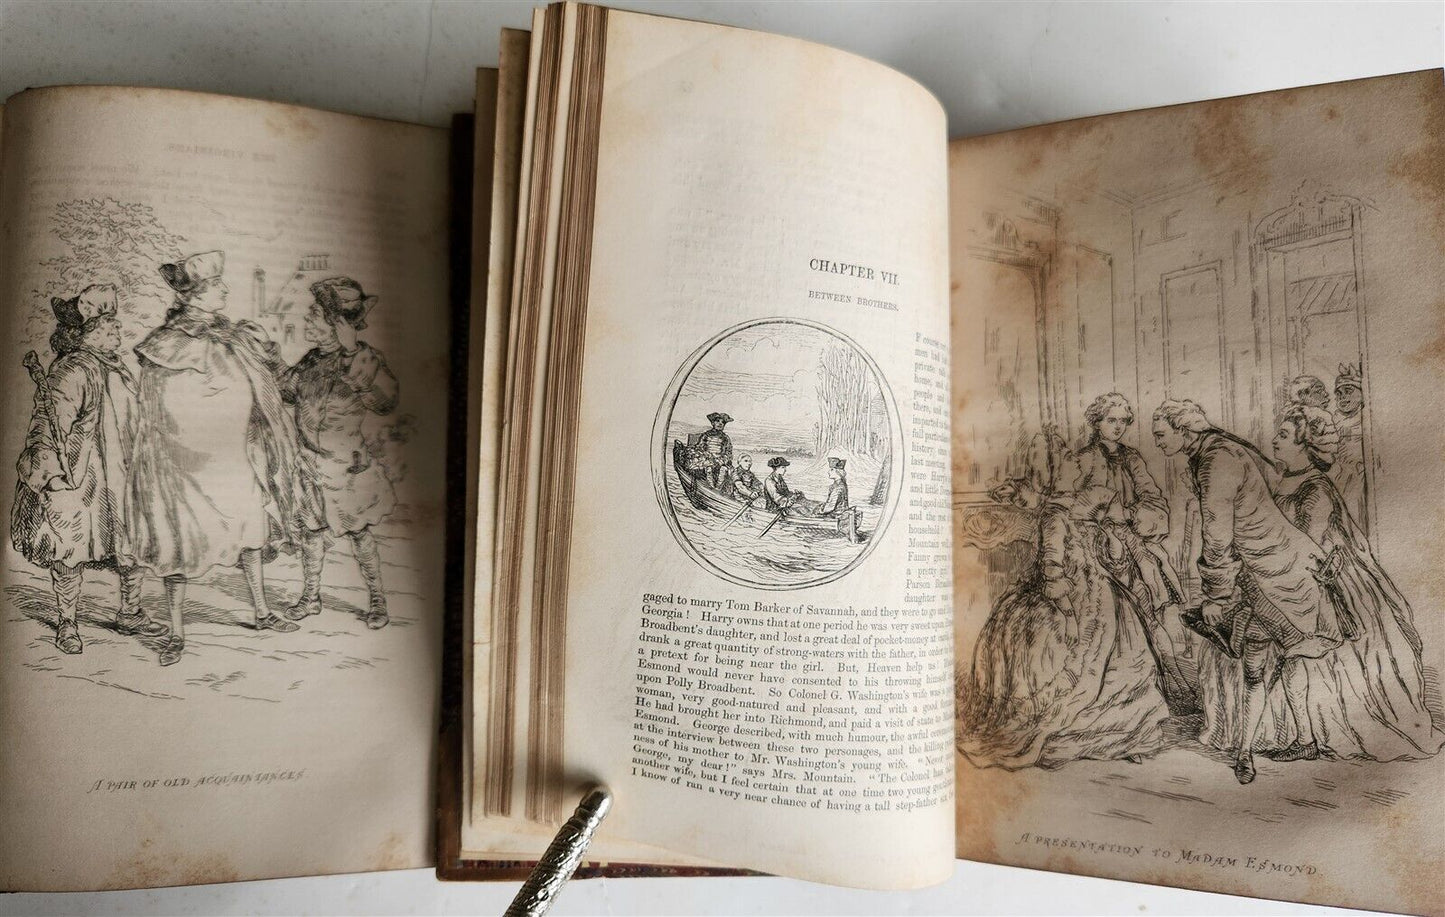 THE VIRGINIANS.
A PAIR OF OLD ACQUAINTANCES.
CHAPTER VII.
BETWEEN BROTHERS.
F course
men had
private
home, and
people and
there, and
imparted to the
full particulars
history, since
last meeting.
were Harry's
and little
and good old
and the rest
household?
Mountain
Fanny grown
a pretty girl
Parson
daughter was
gaged to marry Tom Barker of Savannah, and they were to go and
Georgia! Harry owns that at one period he was very sweet upon
Broadbent's daughter, and lost a great deal of pocket-money at
drank a great quantity of strong-waters with the father, in order to
a pretext for being near the girl. But, Heaven help us!
Esmond would never have consented to his throwing himself
upon Polly Broadbent. So Colonel G. Washington's wife was a
woman, very good-natured and pleasant, and with a good
He had brought her into Richmond, and paid a visit of state to
Esmond. George described, with much humour, the awful
at the interview between these two personages, and the killing
ness of his mother to Mr. Washington's young wife. "Never
George, my dear!" says Mrs. Mountain. "The Colonel has
another wife, but I feel certain that at one time two young
I know of ran a very near chance of having a tall step-father six
A PRESENTATION TO MADAM ESMOND